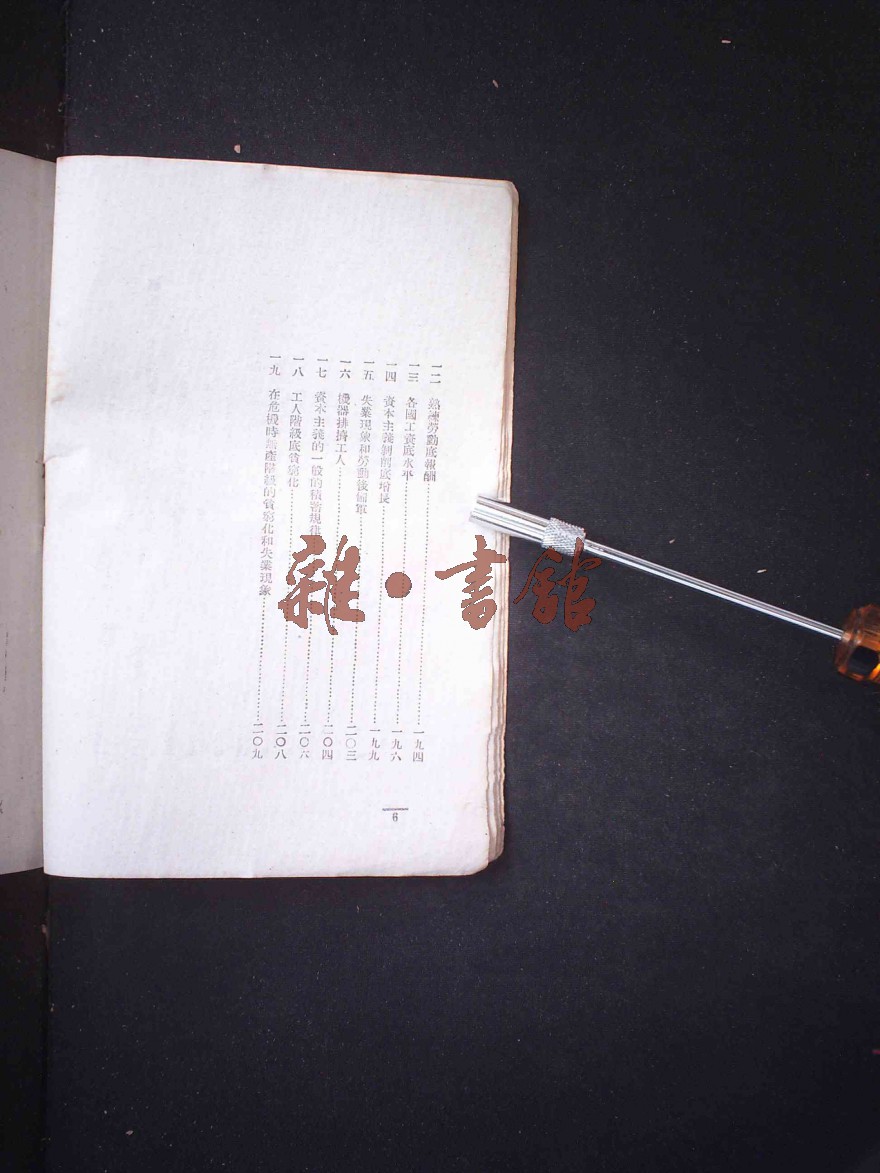 一二 熟練勞動底報酬……一九四
一三 各國工資底水平……一九六
一四 資本主義剝削底增長……一九九
一五 失業現象和勞動後備軍……二〇三
一六 機器排擠工人……二〇四
一七 資本主義的一般的積蓄規律……二〇六
一八 工人階級底貧窮化……二〇八
一九 在危機時無產階級的貧窮化和失業現象……二〇九
6
雜•書館